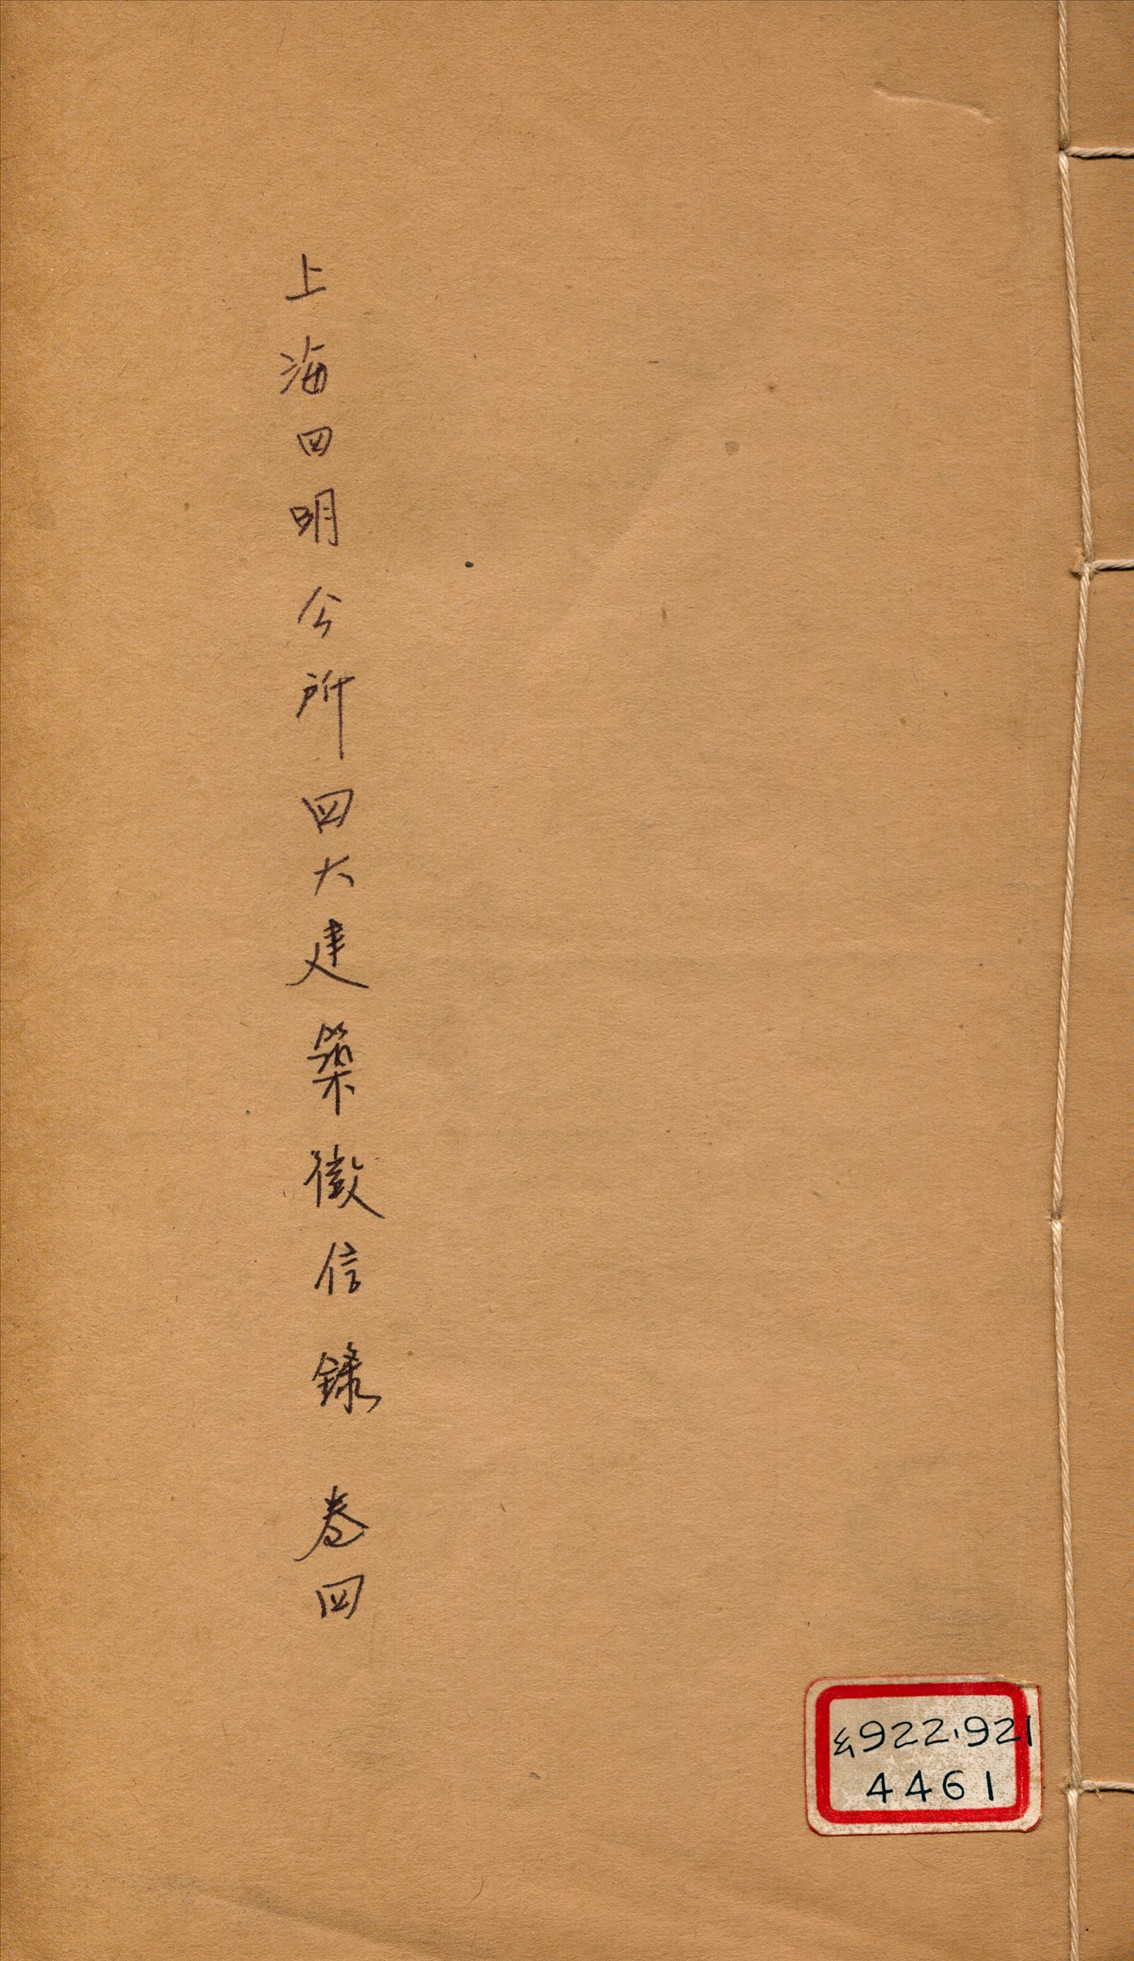 上海四明公所四大建築徵信錄 卷四
922.921
4461